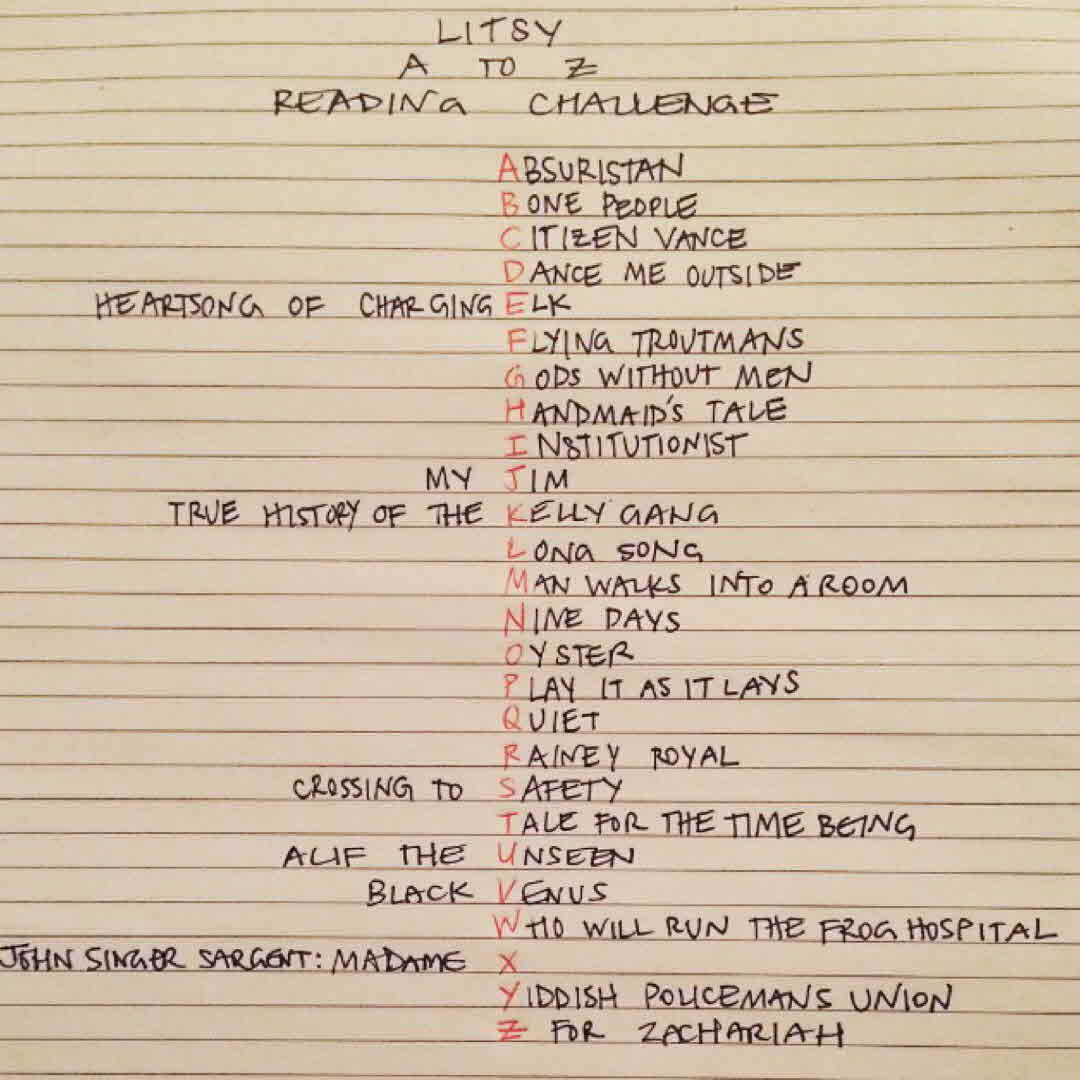 LITSY
A TO Z
READING CHALLENGE
ABSURISTAN
BONE PEOPLE
CITIZEN VANCE
DANCE ME OUTSIDE
HEARTSONG OF CHARGING ELK
FLYING TROUTMANS
GODS WITHOUT MEN
HANDMAID'S TALE
INSTITUTIONIST
MY JIM
TRUE HISTORY OF THE KELLY GANG
LONG SONG
MAN WALKS INTO A ROOM
NINE DAYS
OYSTER
PLAY IT AS IT LAYS
QUIET
RAINEY ROYAL
CROSSING TO SAFETY
TALE FOR THE TIME BEING
ALIF THE UNSEEN
BLACK VENUS
WHO WILL RUN THE FROG HOSPITAL
JOHN SINGER SARGENT: MADAME X
YIDDISH POLICEMANS UNION
Z FOR ZACHARIAH